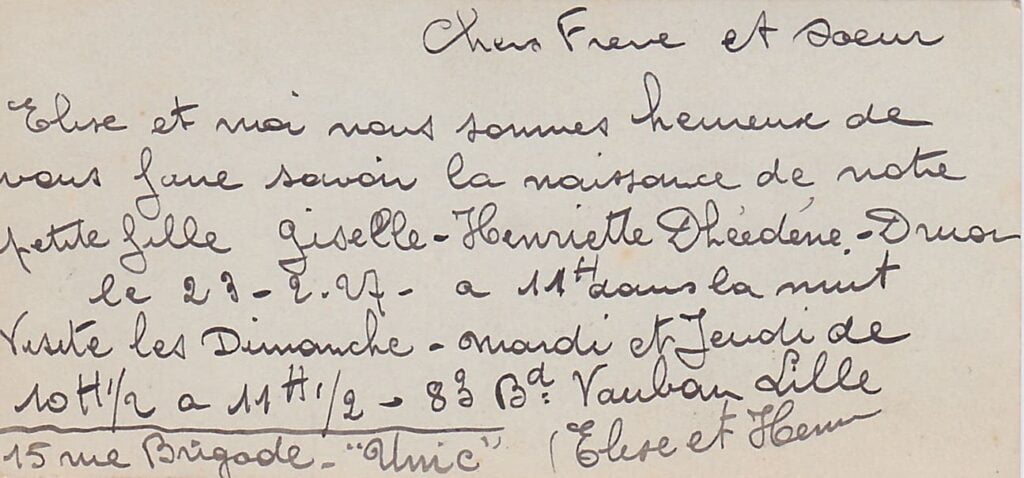 Chers Frere et soeur
Elise et moi nous sommes heureux de
vous faire savoir la naissance de notre
petite fille Giselle-Henriette Dhéédéne.-Druon
le 23-2.27- a 11H dans la nuit
Visite les Dimanche - mardi et Jeudi de
10H1/2 a 11H1/2 - 83 Bd: Vauban Lille
15 rue Brigode - "Unic" (Elise et Henri